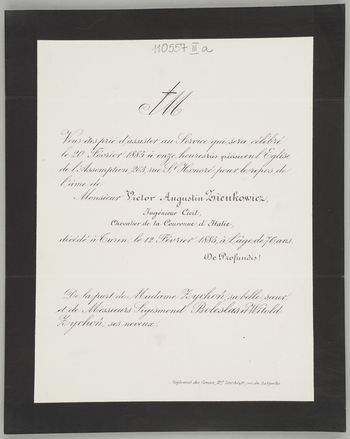 110557 III a
M
Vous êtes prié d'assister au Service qui sera célébré
le 20 Février 1883 à onze heures précises en l'Eglise
de l'Assomption, 263, rue St. Honoré pour le repos de
l'âme de
Monsieur Victor-Augustin Zienkowicz,
Ingénieur Civil,
Chevalier de la Couronne d'Italie,
décédé à Turin, le 12 Février 1883, à l'âge de 76 ans.
De Profundis!
De la part de Madame Zychoń, sa belle sœur,
et de Messieurs Sigismond Boleslas & Witold
Zychoń, ses neveux.